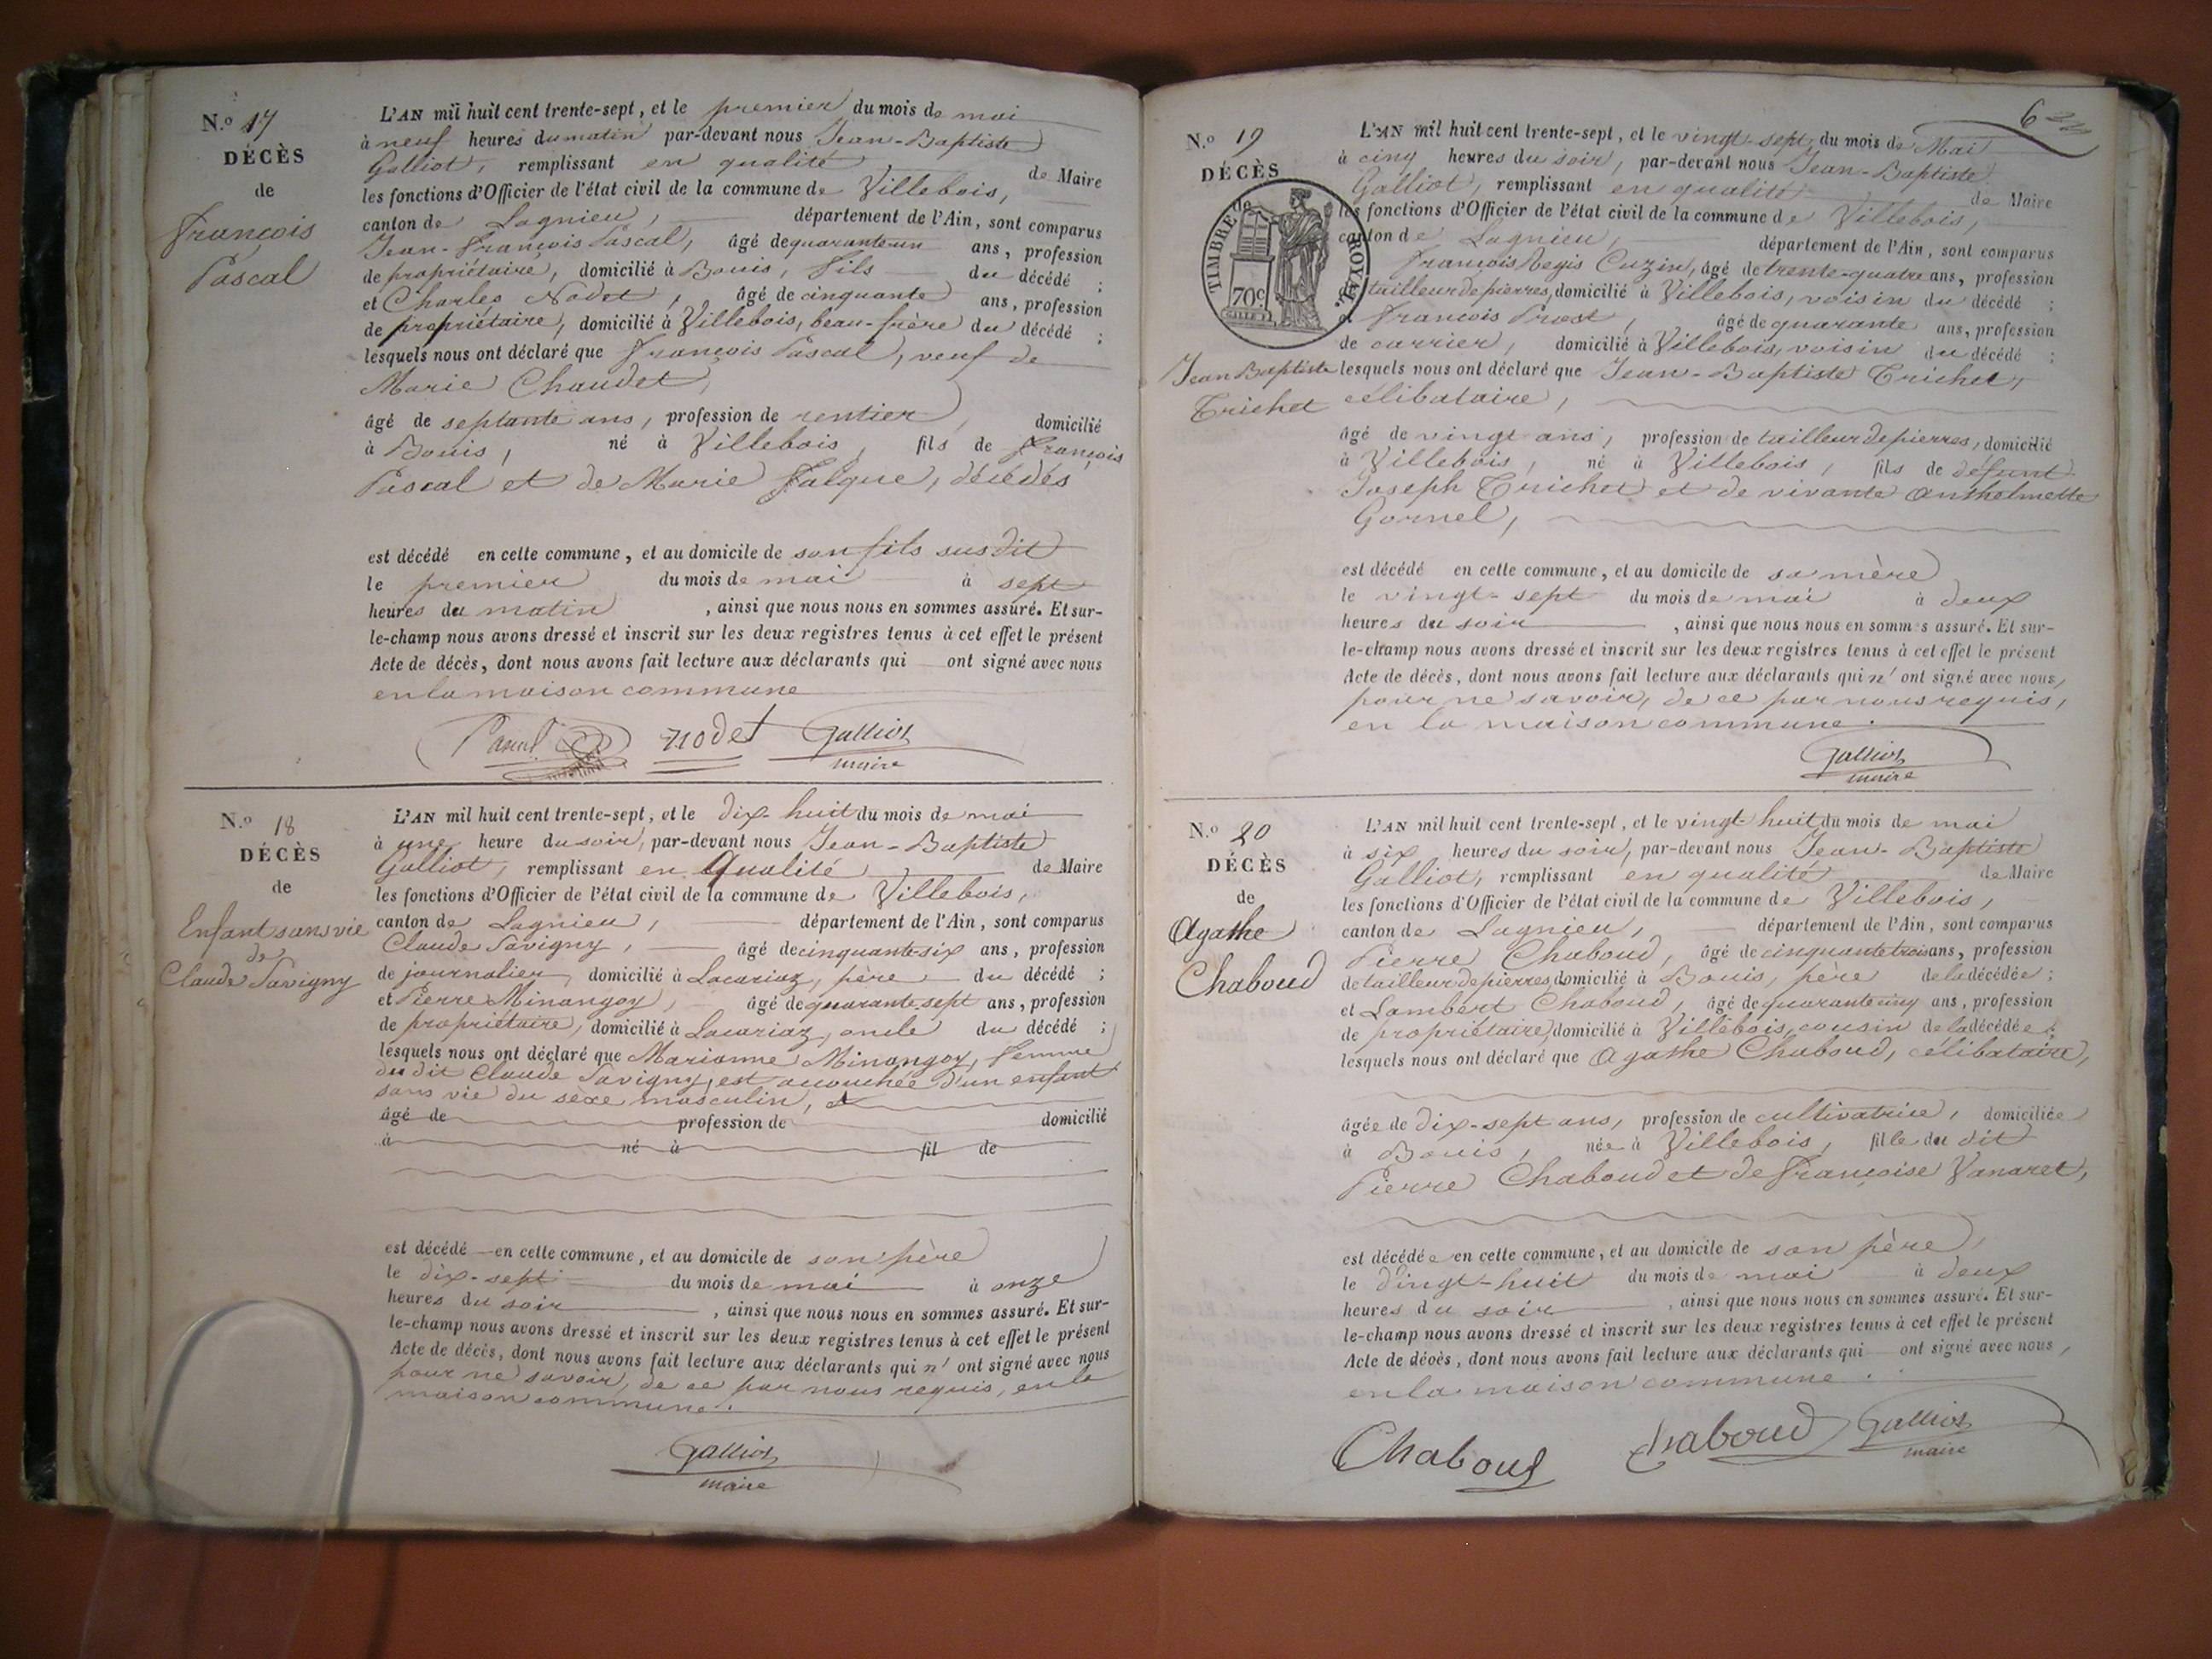 N.º 17
DÉCÈS
de
François
Pascal
L'AN mil huit cent trente-sept, et le premier du mois de mai
à neuf heures du matin par-devant nous Jean-Baptiste
Galliot, remplissant en qualité de Maire
les fonctions d'Officier de l'état civil de la commune de Villebois,
canton de Lagnieu, département de l'Ain, sont comparus
Jean-François Pascal, âgé de quarante un ans, profession
de propriétaire, domicilié à Bouis, fils du décédé ;
et Charles Nodet, âgé de cinquante ans, profession
de propriétaire, domicilié à Villebois, beau-frère du décédé ;
lesquels nous ont déclaré que François Pascal, veuf de
Marie Chaudet,
âgé de septante ans, profession de rentier, domicilié
à Bouis, né à Villebois, fils de François
Pascal et de Marie Falque, décédés
est décédé en cette commune, et au domicile de son fils susdit
le premier du mois de mai à sept
heures du matin, ainsi que nous nous en sommes assuré. Et sur-
le-champ nous avons dressé et inscrit sur les deux registres tenus à cet effet le présent
Acte de décès, dont nous avons fait lecture aux déclarants qui ont signé avec nous
en la maison commune
Pascal nodet Galliot
maire
N.º 18
DÉCÈS
de
Enfant sans vie
de
Claude Savigny
L'AN mil huit cent trente-sept, et le dix-huit du mois de mai
à une heure du soir, par-devant nous Jean-Baptiste
Galliot, remplissant en qualité de Maire
les fonctions d'Officier de l'état civil de la commune de Villebois,
canton de Lagnieu, département de l'Ain, sont comparus
Claude Savigny, âgé de cinquante-six ans, profession
de journalier, domicilié à Lacariaz, père du décédé ;
et Pierre Minangoy, âgé de quarante-sept ans, profession
de propriétaire, domicilié à Lacariaz, oncle du décédé ;
lesquels nous ont déclaré que Marianne Minangoy, femme
du dit Claude Savigny, est accouchée d'un enfant
sans vie du sexe masculin,
âgé de profession de domicilié
à né à fil de
est décédé en cette commune, et au domicile de son père
le dix-sept du mois de mai à onze
heures du soir, ainsi que nous nous en sommes assuré. Et sur-
le-champ nous avons dressé et inscrit sur les deux registres tenus à cet effet le présent
Acte de décès, dont nous avons fait lecture aux déclarants qui n'ont signé avec nous
pour ne savoir, de ce par nous requis, en la
maison commune.
Galliot
maire
6
N.º 19
DÉCÈS
TIMBRE ROYAL
70c
Jean Baptiste
Trichet
L'AN mil huit cent trente-sept, et le vingt-sept du mois de Mai
à cinq heures du soir, par-devant nous Jean-Baptiste
Galliot, remplissant en qualité de Maire
les fonctions d'Officier de l'état civil de la commune de Villebois,
canton de Lagnieu, département de l'Ain, sont comparus
François Regis Cuzin, âgé de trente-quatre ans, profession
tailleur de pierres, domicilié à Villebois, voisin du décédé ;
François Prost, âgé de quarante ans, profession
de carrier, domicilié à Villebois, voisin du décédé ;
lesquels nous ont déclaré que Jean-Baptiste Trichet,
célibataire,
âgé de vingt ans, profession de tailleur de pierres, domicilié
à Villebois, né à Villebois, fils de défunt
Joseph Trichet et de vivante Anthelmette
Gornel,
est décédé en cette commune, et au domicile de sa mère
le vingt-sept du mois de mai à deux
heures du soir, ainsi que nous nous en sommes assuré. Et sur-
le-champ nous avons dressé et inscrit sur les deux registres tenus à cet effet le présent
Acte de décès, dont nous avons fait lecture aux déclarants qui n'ont signé avec nous,
pour ne savoir, de ce par nous requis,
en la maison commune.
Galliot
maire
N.º 20
DÉCÈS
de
Agathe
Chaboud
L'AN mil huit cent trente-sept, et le vingt huit du mois de mai
à six heures du soir, par-devant nous Jean-Baptiste
Galliot, remplissant en qualité de Maire
les fonctions d'Officier de l'état civil de la commune de Villebois,
canton de Lagnieu, département de l'Ain, sont comparus
Pierre Chaboud, âgé de cinquante trois ans, profession
de tailleur de pierres, domicilié à Bouis, père de la décédée ;
et Lambert Chaboud, âgé de quarante cinq ans, profession
de propriétaire, domicilié à Villebois, cousin de la décédée ;
lesquels nous ont déclaré que Agathe Chaboud, célibataire,
âgée de dix-sept ans, profession de cultivatrice, domiciliée
à Bouis, née à Villebois, fille du dit
Pierre Chaboud et de Françoise Vanaret,
est décédée en cette commune, et au domicile de son père,
le vingt-huit du mois de mai à deux
heures du soir, ainsi que nous nous en sommes assuré. Et sur-
le-champ nous avons dressé et inscrit sur les deux registres tenus à cet effet le présent
Acte de décès, dont nous avons fait lecture aux déclarants qui ont signé avec nous,
en la maison commune.
Chaboud Chaboud Galliot
maire